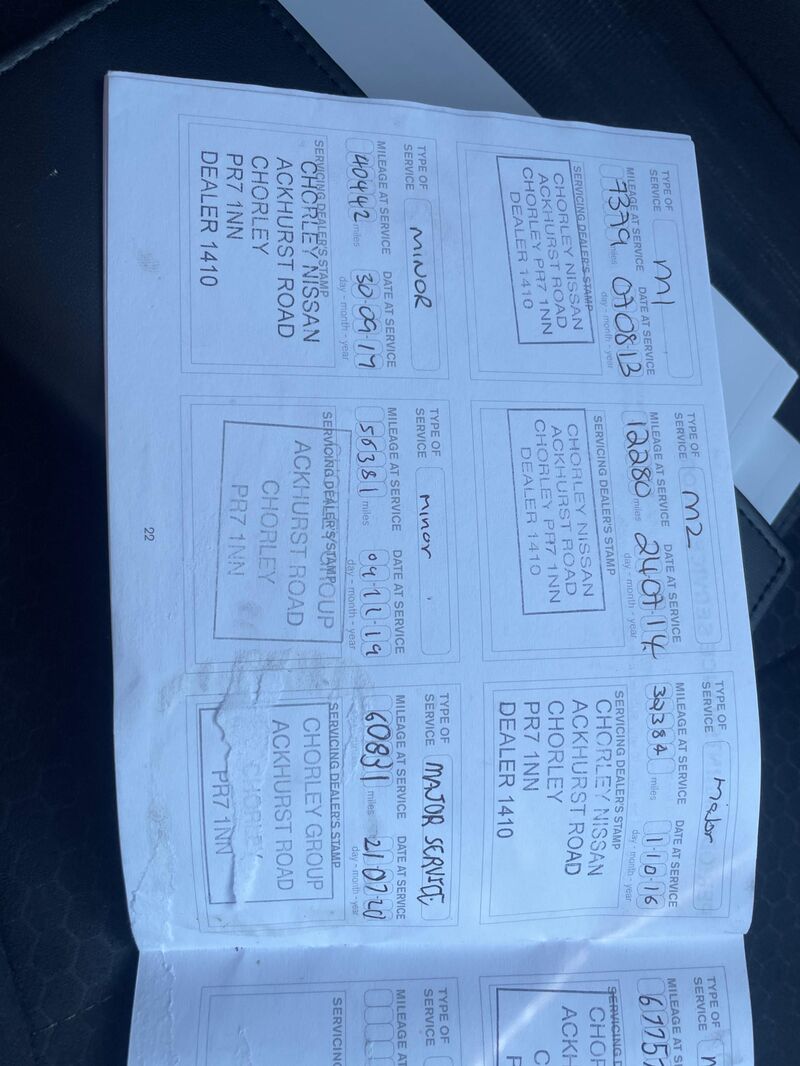 TYPE OF
SERVICE M1
MILEAGE AT SERVICE DATE AT SERVICE
7379 miles 07 08 13
day - month - year
SERVICING DEALER'S STAMP
CHORLEY NISSAN
ACKHURST ROAD
CHORLEY PR7 1NN
DEALER 1410
TYPE OF
SERVICE M2
MILEAGE AT SERVICE DATE AT SERVICE
12280 miles 24 07 14
day - month - year
SERVICING DEALER'S STAMP
CHORLEY NISSAN
ACKHURST ROAD
CHORLEY PR7 1NN
DEALER 1410
TYPE OF
SERVICE Major
MILEAGE AT SERVICE DATE AT SERVICE
miles 1·10·16
day - month - year
SERVICING DEALER'S STAMP
CHORLEY NISSAN
ACKHURST ROAD
CHORLEY
PR7 1NN
DEALER 1410
TYPE OF
SERVICE MINOR
MILEAGE AT SERVICE DATE AT SERVICE
40442 miles 30·09·17
day - month - year
SERVICING DEALER'S STAMP
CHORLEY NISSAN
ACKHURST ROAD
CHORLEY
PR7 1NN
DEALER 1410
TYPE OF
SERVICE Minor
MILEAGE AT SERVICE DATE AT SERVICE
56381 miles 04 12 19
day - month - year
SERVICING DEALER'S STAMP
GROUP
ACKHURST ROAD
CHORLEY
PR7 1NN
TYPE OF
SERVICE MAJOR SERVICE
MILEAGE AT SERVICE DATE AT SERVICE
60831 miles 21 07 20
day - month - year
SERVICING DEALER'S STAMP
CHORLEY GROUP
ACKHURST ROAD
CHORLEY
PR7 1NN
22
TYPE OF
SERVICE
MILEAGE AT S
SERVICING D
CHO
ACKH
C
P
TYPE OF
SERVICE
MILEAGE AT
SERVICING